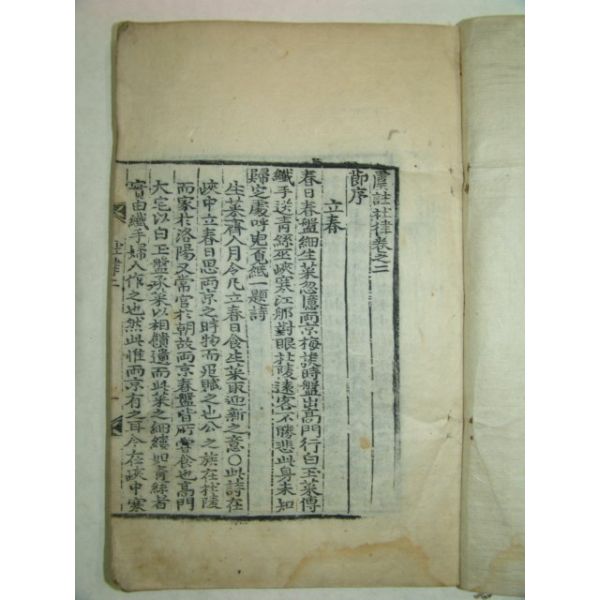 虞註杜律卷之二
節序
立春
春日春盤細生菜忽憶兩京梅發時盤出高門行白玉菜傳
纖手送青絲巫峽寒江那對眼杜陵遠客不勝悲此身未知
歸定處呼兒覓紙一題詩
生菜齊人月令凡立春日食生菜取迎新之意〇此詩在
峽中立春日思兩京之時物而追賦之也公之族在杜陵
而家於洛陽又常官於朝故兩京春盤皆所嘗食也高門
大宅以白玉盤承菜以相饋遺而此菜之細縷如青絲者
實由纖手婦人作之也然此惟兩京有之耳今在峽中寒
杜律二